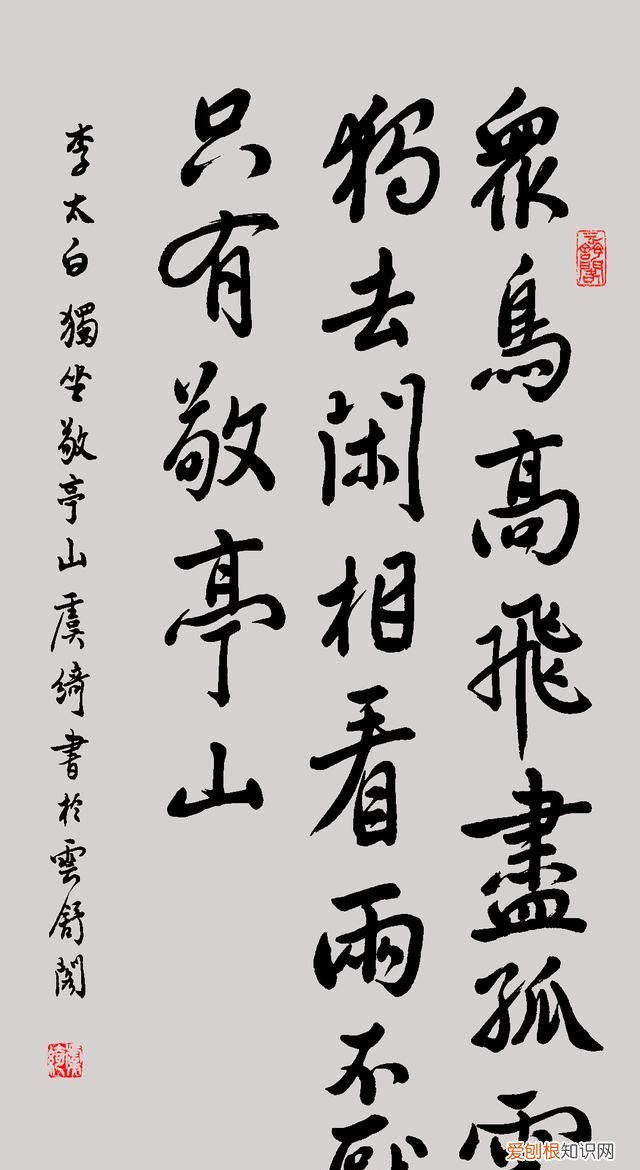 衆鳥高飛盡孤雲
獨去閑相看兩不厭
只有敬亭山
李太白獨坐敬亭山虞綺書於雲舒閣
爱刨根知识网